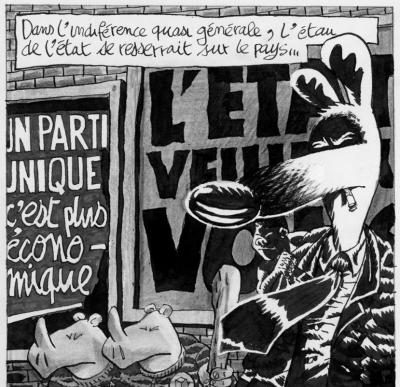 Dans l'indiférence quasi générale, L'étau
de l'état se resserrait sur le pays...
UN PARTI
UNIQUE
c'est plus
écono-
mique
L'ETAT
VEILLE